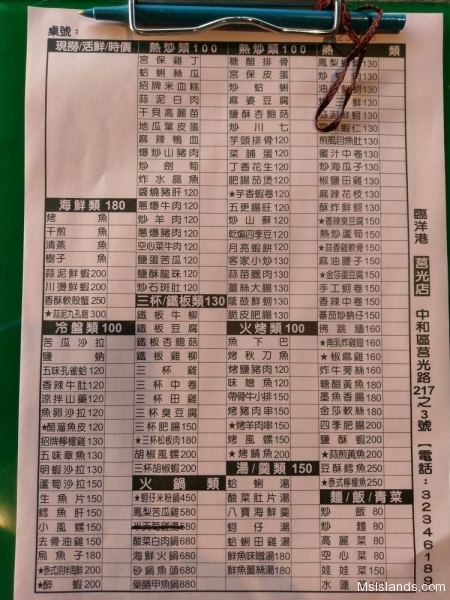 桌號：
現撈/活鮮/時價
海鮮類 180
烤魚
干煎魚
清蒸魚
樹子魚
蒜泥鮮蝦200
川燙鮮蝦200
香酥軟殼蟹250
★蒜泥九孔鮑300
冷盤類 100
苦瓜沙拉
鹽蚋
五味孔雀蛤120
香辣牛肚120
涼拌山藥120
魚卵沙拉120
★醋溜魚皮120
招牌檸檬雞130
五味章魚130
明蝦沙拉130
蘆筍沙拉150
生魚片150
鱈魚肝150
小風螺150
去骨油雞150
烏魚子180
★泰式涼拌海鮮200
★醉蝦200
熱炒類100
宮保雞丁
蛤蜊絲瓜
招牌米血糕
蒜泥白肉
干貝高麗苗
地瓜葉皮蛋
麻辣鴨血
爆炒山豬肉
炒劍筍
炸水晶魚
醬燒豬肝120
蔥爆牛肉120
炒羊肉120
蔥爆豬肉120
空心菜牛肉120
鹽蛋苦瓜120
鹽酥龍珠120
炒石斑肚120
三杯/鐵板類130
鐵板牛柳
鐵板豆腐
鐵板杏鮑菇
鐵板雞柳
三杯雞
三杯中卷
三杯田雞
三杯臭豆腐
三杯肥腸150
★三杯松板肉180
胡椒風螺200
三杯胡椒蝦200
火鍋類
★蚵仔米粉鍋450
鳳梨苦瓜雞580
酸菜白肉鍋680
海鮮火鍋680
砂鍋魚頭680
藥膳甲魚鍋880
熱炒類100
糖醋排骨
宮保皮蛋
炒蛤蜊
麻婆豆腐
鹽酥杏鮑菇
炒川七
芋頭排骨120
菜脯蛋120
丁香花生120
肥腸茄煲120
★芋香蝦卷120
五更腸旺120
炒山蘇120
乾煸四季豆120
月亮蝦餅120
客家小炒130
蒜苗臘肉130
薑絲大腸130
蔭鼓鮮蚵130
脆皮肥腸130
火烤類 100
魚下巴
烤秋刀魚
烤鹽豬肉120
味噌魚120
帶骨牛小排150
烤豬肉串150
★烤羊肉串150
烤風螺150
★烤鯖魚200
湯/羹類 150
蛤蜊湯
酸菜肚片湯
八寶海鮮羹
蚵仔湯
蛤蜊田雞湯
鮮魚味噌湯180
鮮魚薑絲湯180
熱類
130
130
130
130
130
煎虱目魚肚130
蜜汁中卷130
炒海瓜子130
椒鹽田雞130
麻辣花枝130
酥炸鮮蚵130
★香辣臭豆腐150
熱炒蘆筍150
★蒜香雞軟骨150
麻油腰子150
★金莎豆腐150
手工蚵卷150
香辣中卷150
蕃茄炒蚋仔150
佛跳牆160
★南乳炸雞翅160
★椒麻雞160
炸牛蒡絲160
糖醋黃魚180
墨魚香腸180
金莎軟絲180
四季肥腸200
鹽酥蝦200
★蒜煎黃魚200
豆酥鱈魚250
★泰式檸檬魚250
麵/飯/青菜
炒飯80
炒麵80
高麗菜80
空心菜80
娃娃菜150
水蓮
臨洋港 莒光店 中和區莒光路217之3號【電話：32346189
Msislands.com